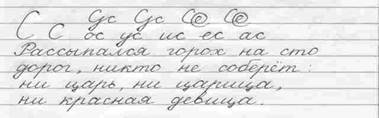 С С ос ус ис ес ас
Рассыпался горох на сто
дорог, никто не соберёт:
ни царь, ни царица,
ни красная девица.